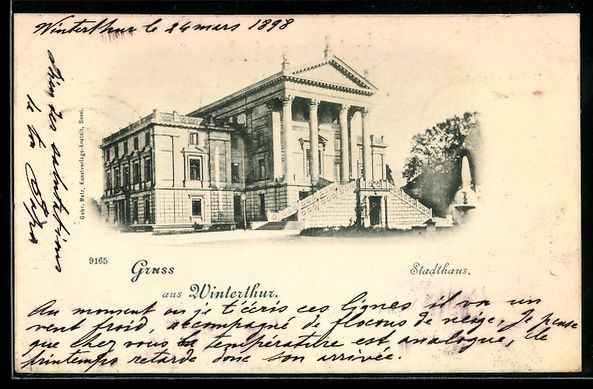 Winterthur le 24 mars 1898
Bien des salutations
à la
Gebr. Metz, Kunstverlags-Anstalt, Basel.
9165
Gruss
aus Winterthur.
Stadthaus.
Au moment ou je t'écris ces lignes il va un
vent froid, acompagné de flocons de neige, Je pense
que chez vous la température est analogue, le
printemps retarde donc son arrivée.